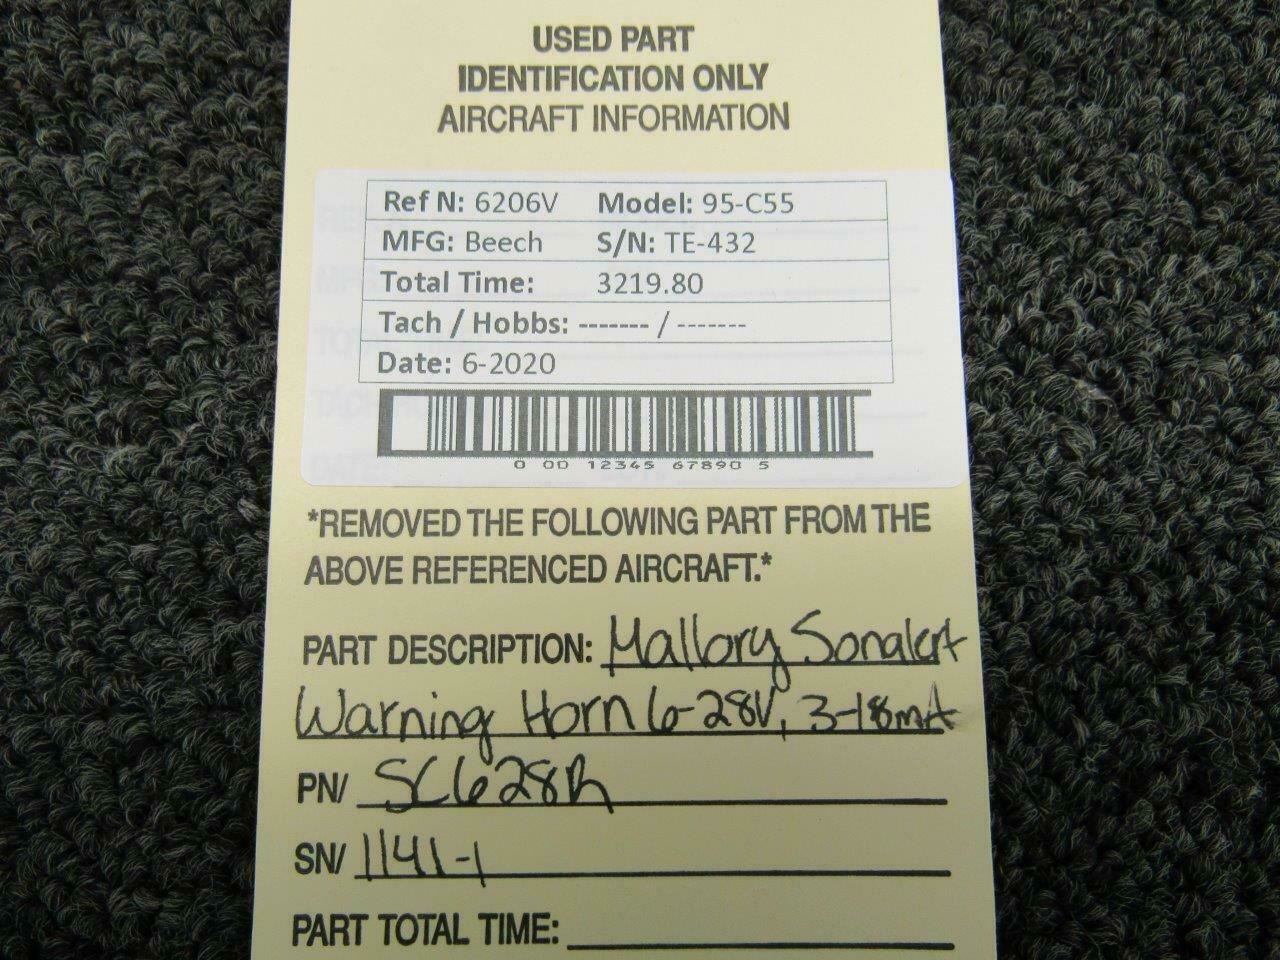 USED PART
IDENTIFICATION ONLY
AIRCRAFT INFORMATION
Ref N: 6206V Model: 95-C55
MFG: Beech S/N: TE-432
Total Time: 3219.80
Tach / Hobbs: ------- / -------
Date: 6-2020
0 00 12345 67890 5
*REMOVED THE FOLLOWING PART FROM THE
ABOVE REFERENCED AIRCRAFT.*
PART DESCRIPTION: Mallory Sonalert
Warning Horn 6-28V, 3-18mA
PN/ SC628R
SN/ 1141-1
PART TOTAL TIME: